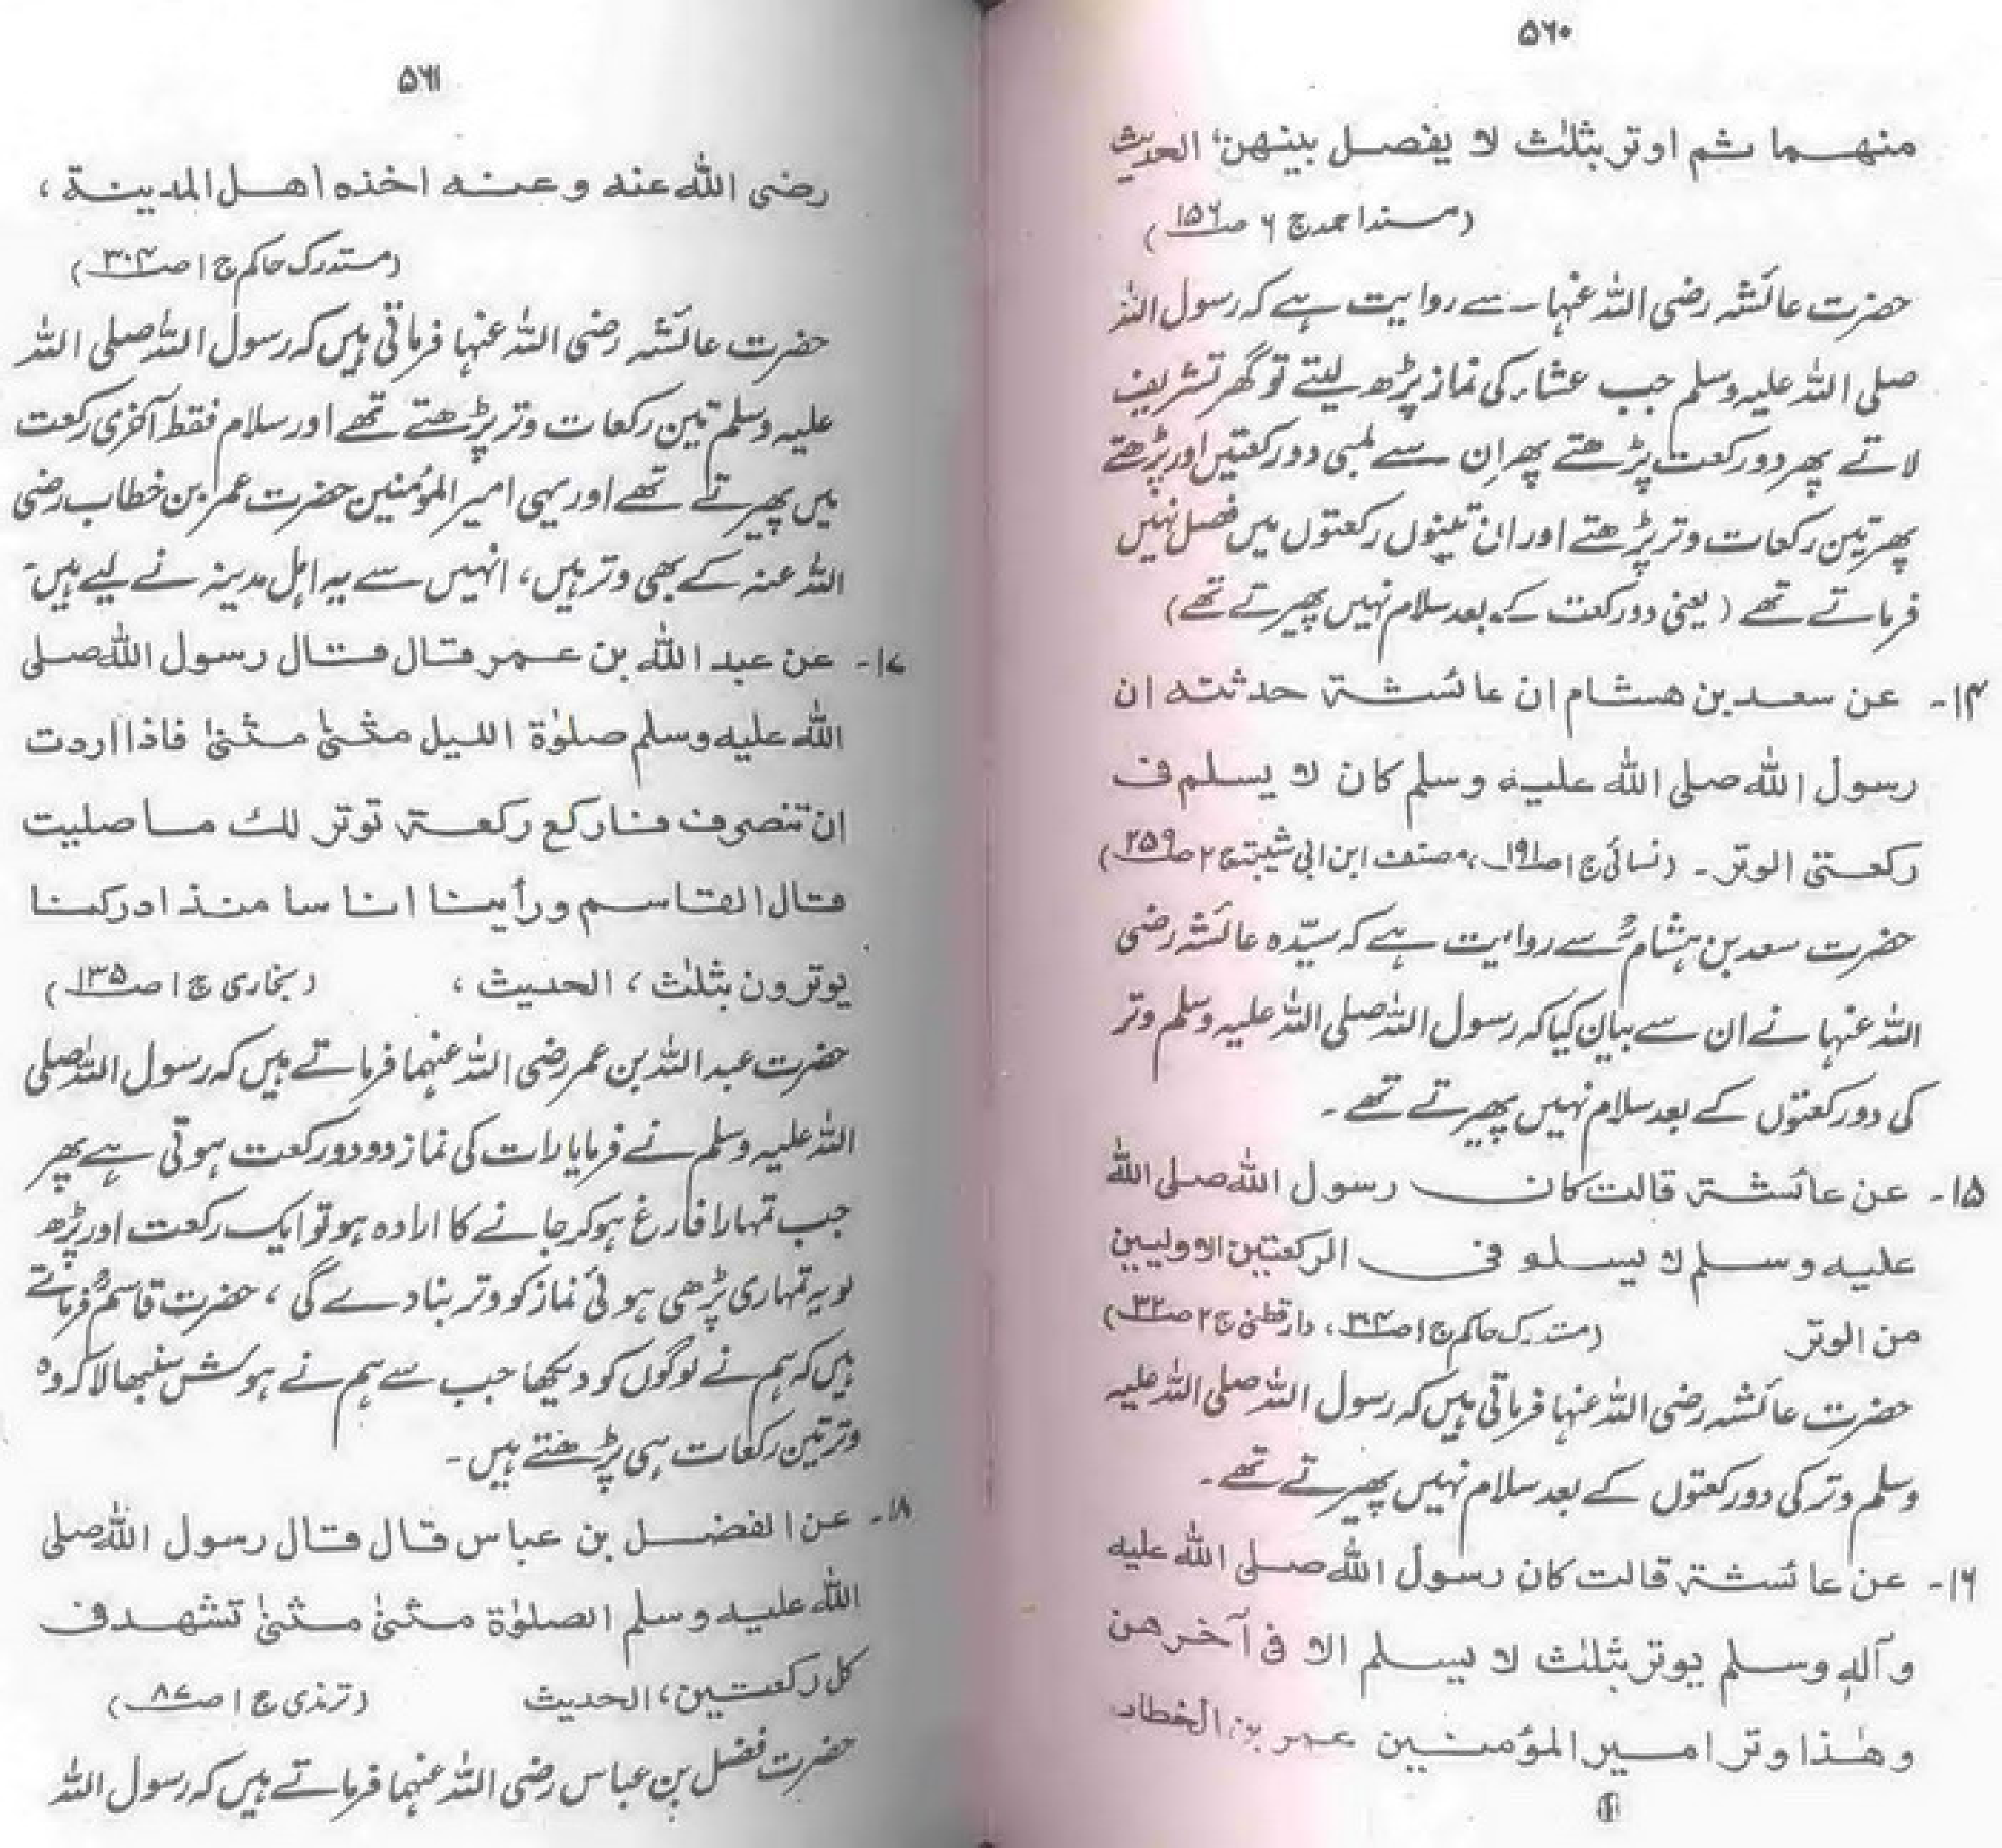 ۵۶۰
منهما ثم اوتر بثلٰث لا یفصل بینهن، الحدیث
(مسند احمد ج ۶ ص ۱۵۶)
حضرت عائشہ رضی اللہ عنہا سے روایت ہے کہ رسول اللہ
صلی اللہ علیہ وسلم جب عشاء کی نماز پڑھ لیتے تو گھر تشریف
لاتے پھر دو رکعت پڑھتے پھر اِن سے لمبی دو رکعتیں اور پڑھتے
پھر تین رکعات وتر پڑھتے اور ان تینوں رکعتوں میں فصل نہیں
فرماتے تھے (یعنی دو رکعت کے بعد سلام نہیں پھیرتے تھے)
۱۴- عن سعد بن هشام ان عائشة حدثته ان
رسول الله صلی الله علیه وسلم کان لا یسلم فی
رکعتی الوتر۔ (نسائی ج ۱ ص ۱۹۱، مصنف ابن ابی شیبة ج ۲ ص ۲۵۹)
حضرت سعد بن ہشامؒ سے روایت ہے کہ سیّدہ عائشہ رضی
اللہ عنہا نے ان سے بیان کیا کہ رسول اللہ صلی اللہ علیہ وسلم وتر
کی دو رکعتوں کے بعد سلام نہیں پھیرتے تھے۔
۱۵- عن عائشة قالت کان رسول الله صلی الله
علیه وسلم لا یسلم فی الرکعتین الاولیین
من الوتر (مستدرک حاکم ج ۱ ص ۳۰۴، دارقطنی ج ۲ ص ۳۲)
حضرت عائشہ رضی اللہ عنہا فرماتی ہیں کہ رسول اللہ صلی اللہ علیہ
وسلم وتر کی دو رکعتوں کے بعد سلام نہیں پھیرتے تھے۔
۱۶- عن عائشة قالت کان رسول الله صلی الله علیه
وآلهٖ وسلم یوتر بثلٰث لا یسلم الا فی آخرهن
وهٰذا وتر امیر المؤمنین عمر بن الخطاب
۵۶۱
رضی الله عنه وعنه اخذه اهل المدینة،
(مستدرک حاکم ج ۱ ص ۳۰۴)
حضرت عائشہ رضی اللہ عنہا فرماتی ہیں کہ رسول اللہ صلی اللہ
علیہ وسلم تین رکعات وتر پڑھتے تھے اور سلام فقط آخری رکعت
میں پھیرتے تھے اور یہی امیر المؤمنین حضرت عمر بن خطاب رضی
اللہ عنہ کے بھی وتر ہیں، انہیں سے یہ اہل مدینہ نے لیے ہیں۔
۱۷- عن عبد الله بن عمر قال قال رسول الله صلی
الله علیه وسلم صلوٰة اللیل مثنیٰ مثنیٰ فاذا اردت
ان تنصرف فارکع رکعة توتر لك ما صلیت
قال القاسم ورأینا اناسا منذ ادرکنا
یوترون بثلٰث، الحدیث، (بخاری ج ۱ ص ۱۳۵)
حضرت عبداللہ بن عمر رضی اللہ عنہما فرماتے ہیں کہ رسول اللہ صلی
اللہ علیہ وسلم نے فرمایا رات کی نماز دو دو رکعت ہوتی ہے پھر
جب تمہارا فارغ ہوکر جانے کا ارادہ ہو تو ایک رکعت اور پڑھ
لو یہ تمہاری پڑھی ہوئی نماز کو وتر بنا دے گی، حضرت قاسمؒ فرماتے
ہیں کہ ہم نے لوگوں کو دیکھا جب سے ہم نے ہوش سنبھالا کہ وہ
وتر تین رکعات ہی پڑھتے ہیں۔
۱۸- عن الفضل بن عباس قال قال رسول الله صلی
الله علیه وسلم الصلوٰة مثنیٰ مثنیٰ تشهد فی
کل رکعتین، الحدیث (ترمذی ج ۱ ص ۸۷)
حضرت فضل بن عباس رضی اللہ عنہما فرماتے ہیں کہ رسول اللہ